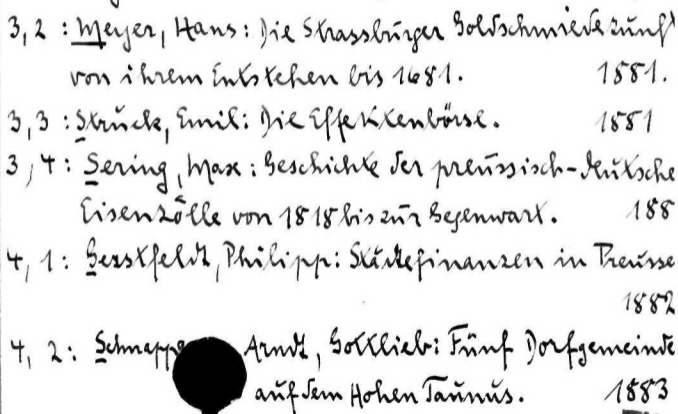 3,2 : Meyer, Hans: Die Strassburger Goldschmiedezunft
von ihrem Entstehen bis 1681. 1881.
3,3 : Struck, Emil: Die Effektenbörse. 1881
3,4 : Sering, Max: Geschichte der preussisch-deutsche
Eisenzölle von 1818 bis zur Gegenwart. 188
4, 1: Gerstfeldt, Philipp: Städtefinanzen in Preusse
1882
4, 2: Schnappe Arndt, Gottlieb: Fünf Dorfgemeinde
auf dem Hohen Taunus. 1883